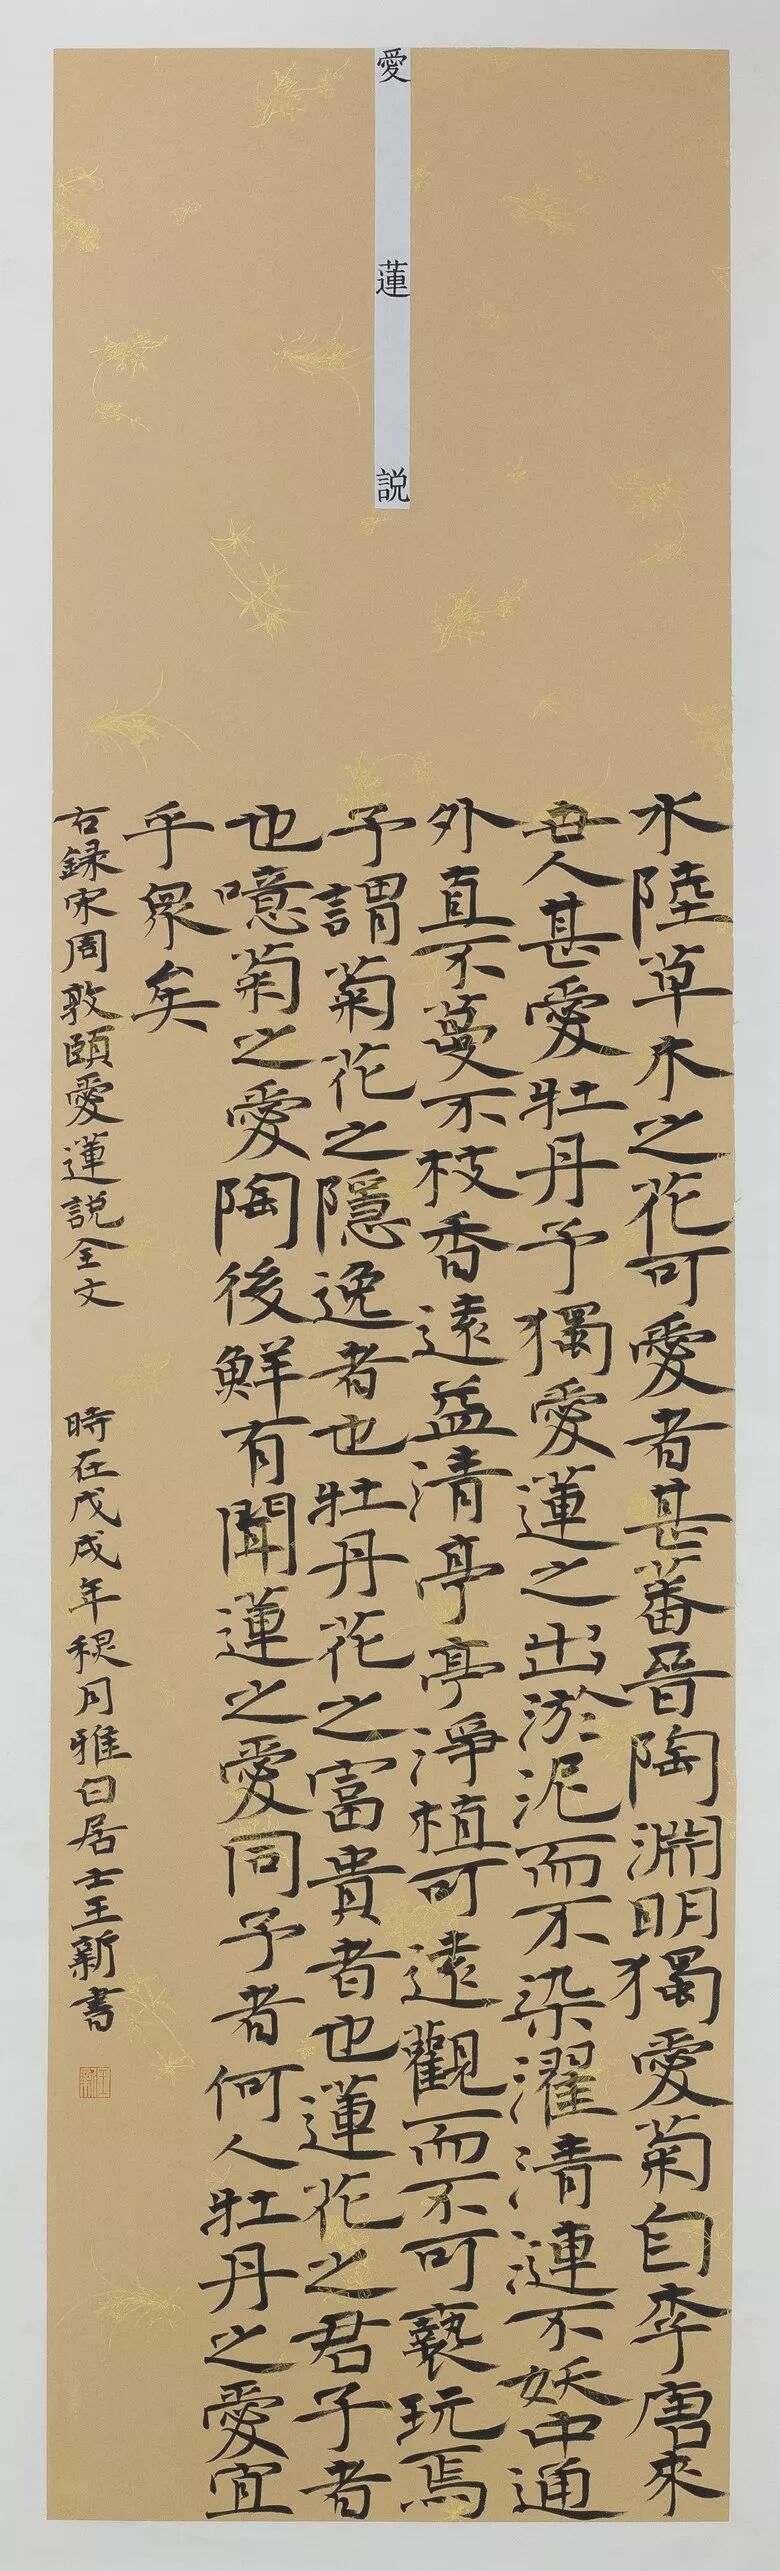 愛蓮説
水陸草木之花可愛者甚蕃晉陶淵明獨愛菊自李唐來
世人甚愛牡丹予獨愛蓮之出淤泥而不染濯清漣不妖中通
外直不蔓不枝香遠益清亭亭淨植可遠觀而不可褻玩焉
予謂菊花之隱逸者也牡丹花之富貴者也蓮花之君子者
也噫菊之愛陶後鮮有聞蓮之愛同予者何人牡丹之愛宜
乎衆矣
右録宋周敦頤愛蓮説全文 時在戊戌年秋月雅白居士王新書